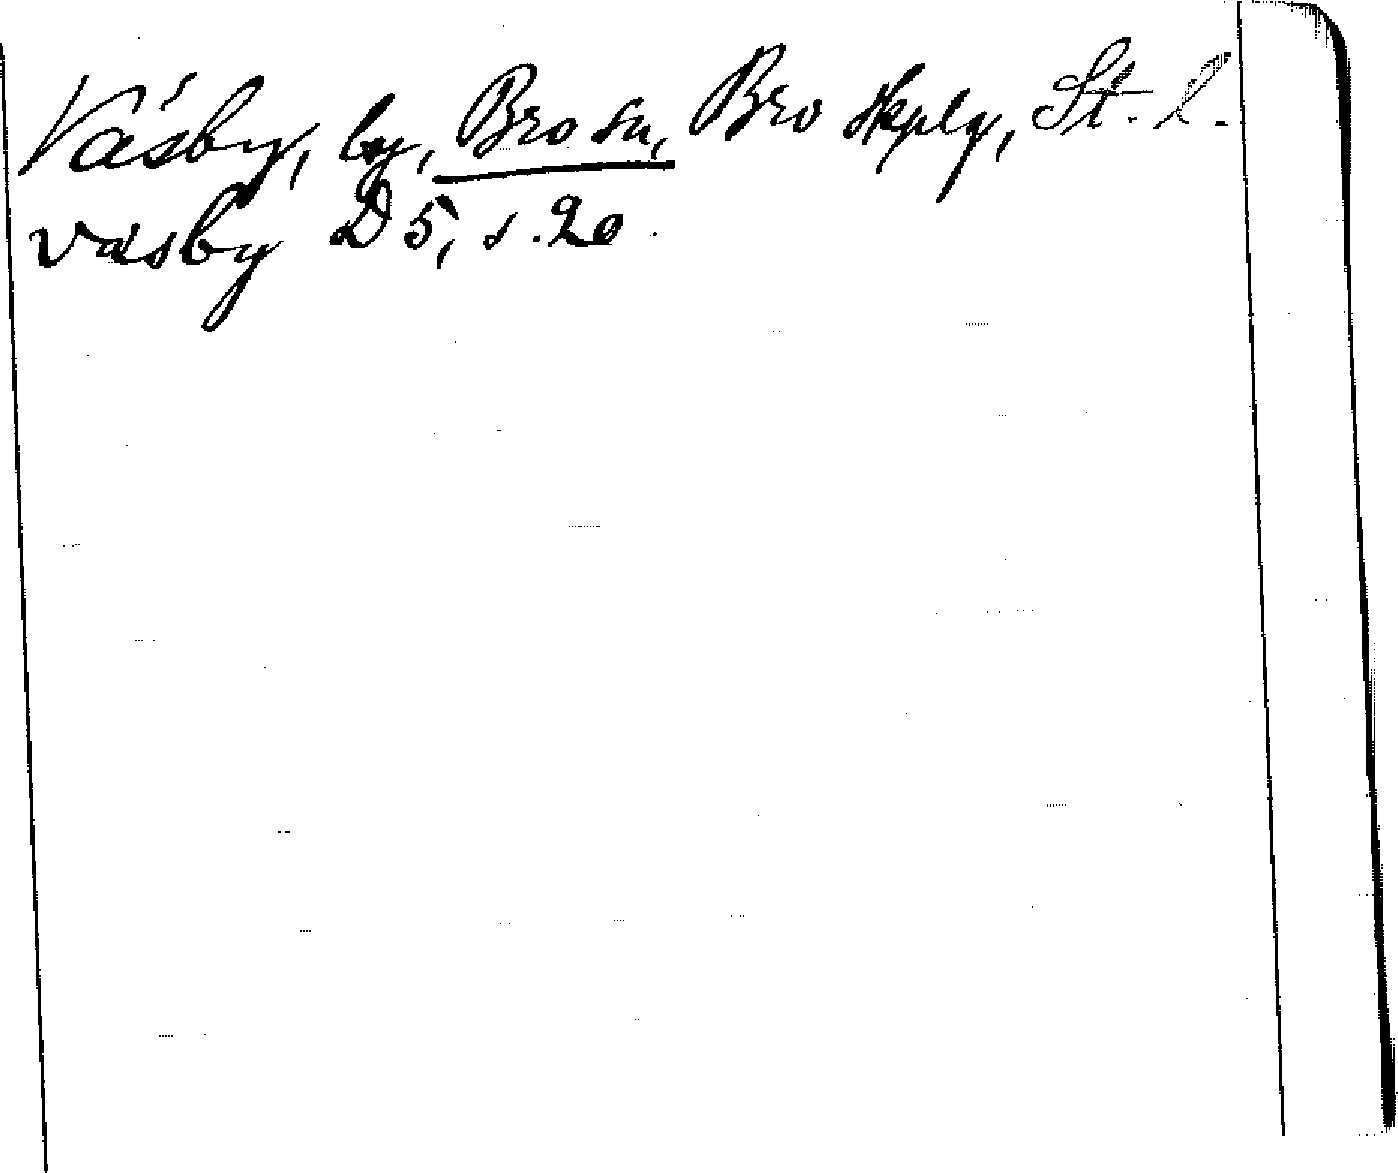 Vásby, by, Bro sn, Bro skplg, St. l.
vasby D 5, s. 20.